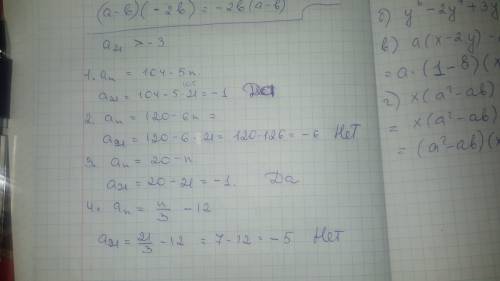 (a-b)(-2b) = -2b(a-b)
a₂₁ > -3
1. aₙ = 104-5n
105
a₂₁ = 104-5·21 = -1 Да
2. aₙ = 120-6n =
a₂₁ = 120-6·21 = 120-126 = -6 Нет
3. aₙ = 20-n
a₂₁ = 20-21 = -1. Да
4. aₙ = n/3 - 12
a₂₁ = 21/3 - 12 = 7-12 = -5 Нет
в) a(x-2y)
= a·(1-8)(x
г) x(a²-ab)
= x(a²-ab)
= (a²-ab)(x